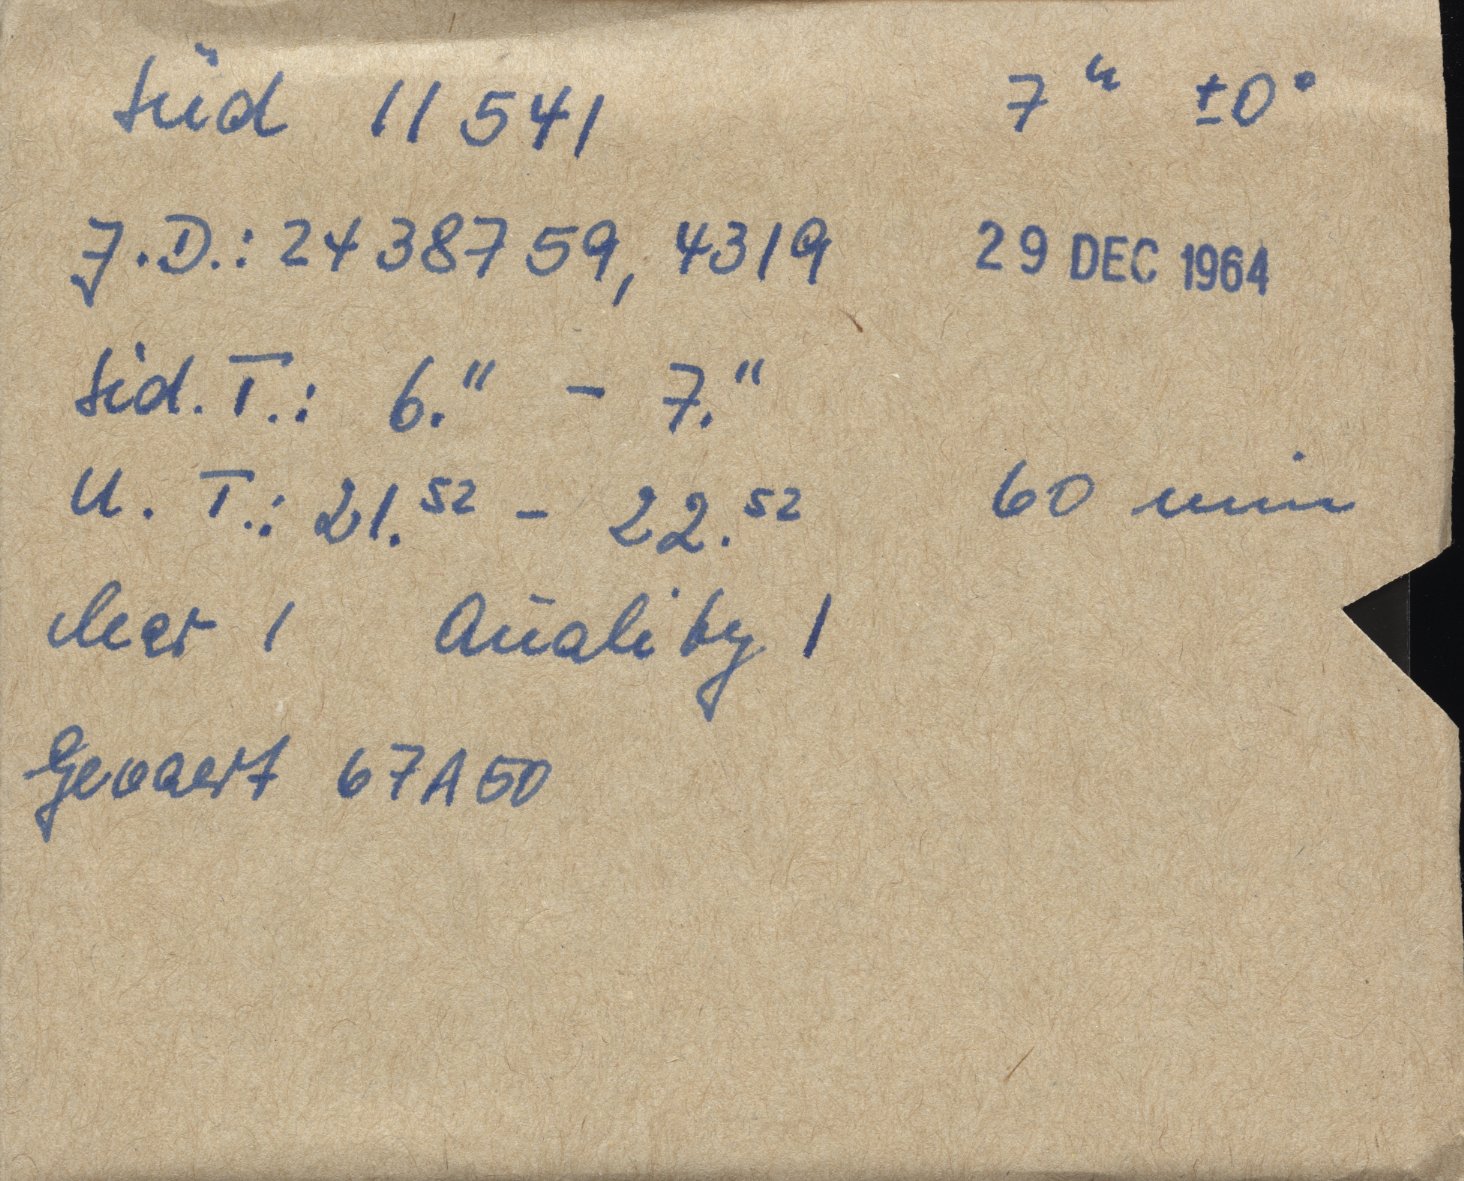 Süd 11541 7ʰ ±0°
J.D.: 2438759,4319 29 DEC 1964
Sid. T.: 6.¹¹ - 7.¹¹
U. T.: 21.⁵² - 22.⁵² 60 min
clear 1 Quality 1
Gevaert 67A50